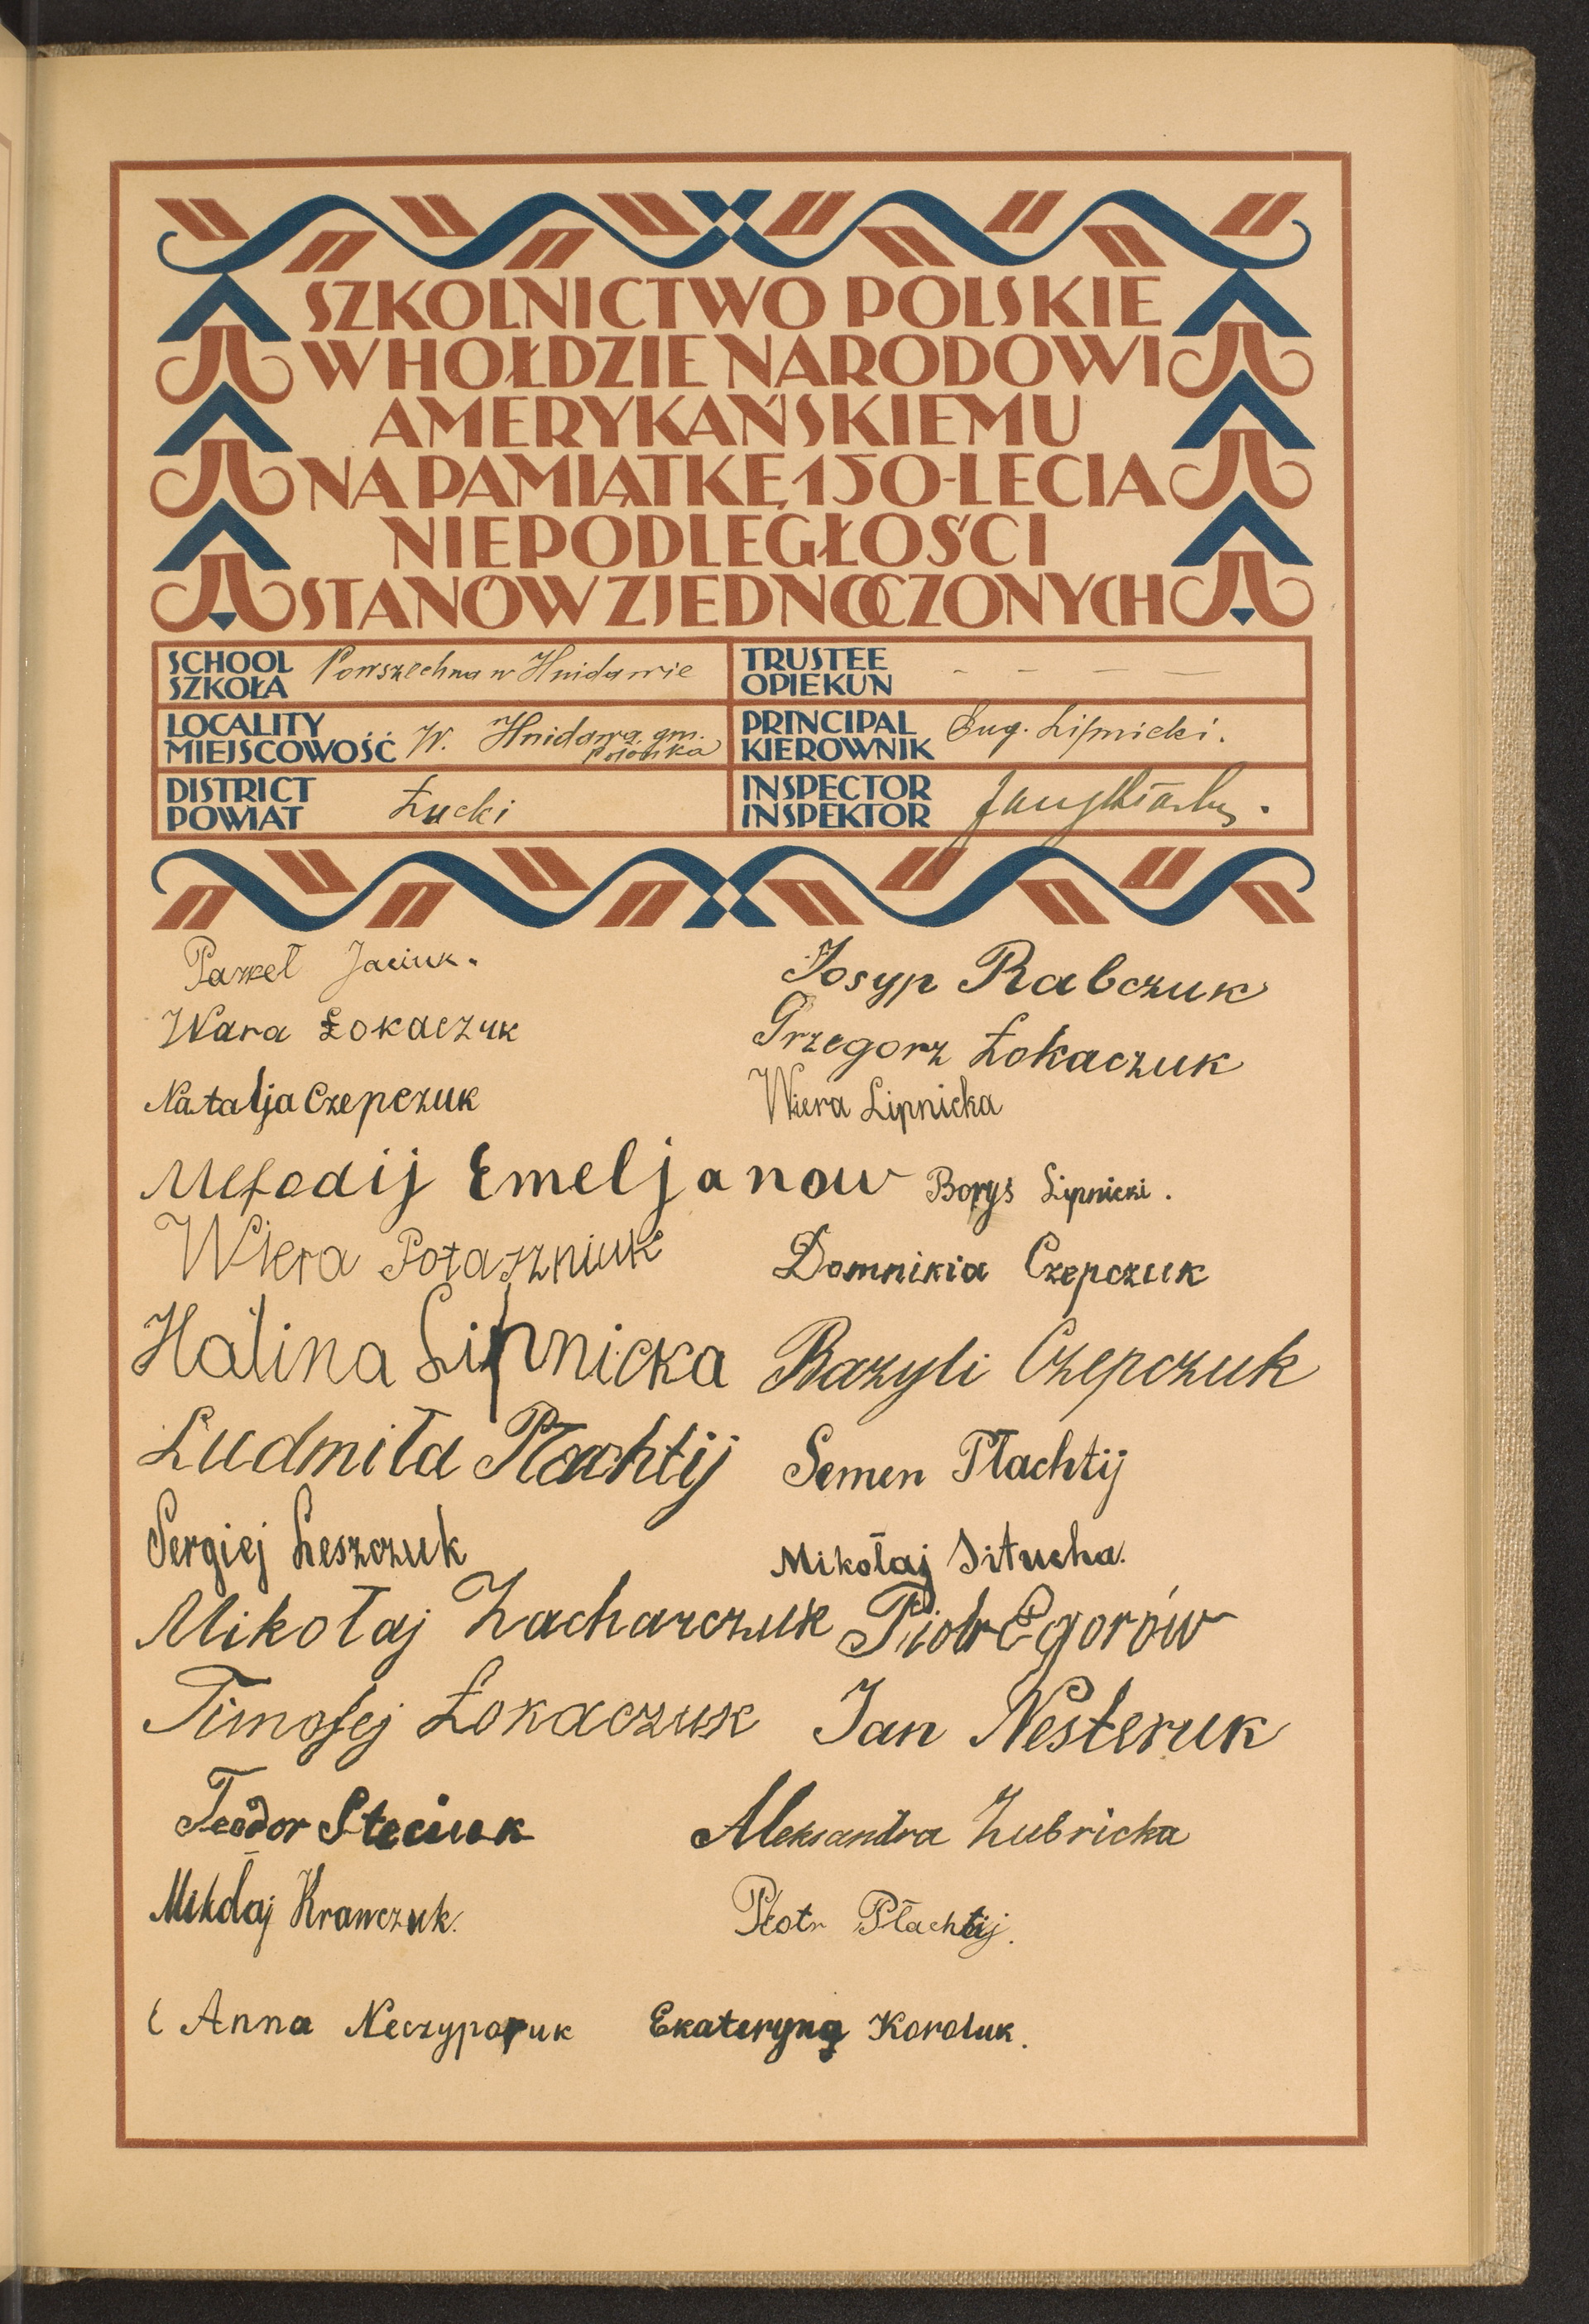 SZKOLNICTWO POLSKIE
W HOŁDZIE NARODOWI
AMERYKAŃSKIEMU
NA PAMIĄTKĘ 150-LECIA
NIEPODLEGŁOŚCI
STANÓW ZJEDNOCZONYCH
SCHOOL
SZKOŁA
Powszechna w Hnidawie
TRUSTEE
OPIEKUN
- - - -
LOCALITY
MIEJSCOWOŚĆ
W. Hnidawa gm.
Połonka
PRINCIPAL
KIEROWNIK
Eug. Lipnicki.
DISTRICT
POWIAT
Łucki
INSPECTOR
INSPEKTOR
Paweł Jaciuk.
Josyp Rabczuk
Wara Łokaczuk
Grzegorz Łokaczuk
Natalja Czepczuk
Wiera Lipnicka
Mefodij Emeljanow
Borys Lipnicki.
Wiera Potaszniuk
Domnikia Czepczuk
Halina Lipnicka
Bazyli Czepczuk
Ludmiła Płachtij
Semen Płachtij
Sergiej Leszczuk
Mikołaj Situcha.
Mikołaj Zacharczuk
Piotr Egorów
Timofej Łokaczuk
Jan Nesteruk
Teodor Steciuk
Aleksandra Zubricka
Mikołaj Krawczuk.
Piotr Płachtij.
Anna Neczyporuk
Ekateryna Koroluk.